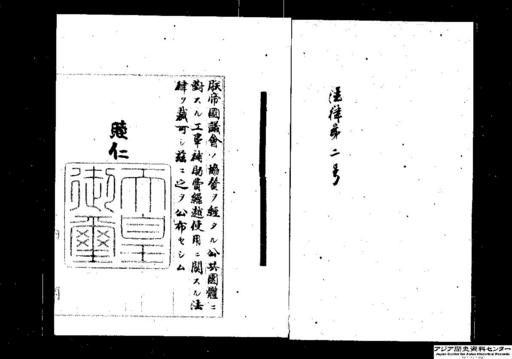 法律第二号
朕帝國議會ノ協賛ヲ經タル公共團體ニ
對スル工事補助費繰越使用ニ關スル法
律ヲ裁可シ茲ニ之ヲ公布セシム
睦仁
天皇
御璽
アジア歴史資料センター
Japan Center for Asian Historical Records